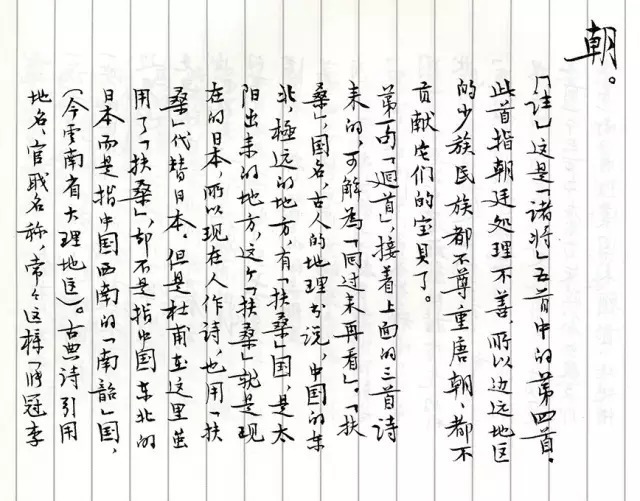 朝。
「註」这是「诸将」五首中的第四首。
此首指朝廷处理不善，所以边远地区
的少族民族都不尊重唐朝、都不
贡献它们的宝贝了。
第一句「迴首」，接着上面的三首诗
来的，可解為「回过来再看」。「扶
桑」，国名，古人的地理书说，中国的东
北，極远的地方，有「扶桑」国，是太
阳出来的地方，这个「扶桑」就是现
在的日本，所以现在人作诗，也用「扶
桑」代替日本。但是杜甫在这里虽
用了「扶桑」，却不是指中国东北的
日本而是指中国西南的「南韶」国，
（今雲南省大理地区）。古典诗引用
地名、官职名称，常々这样「张冠李